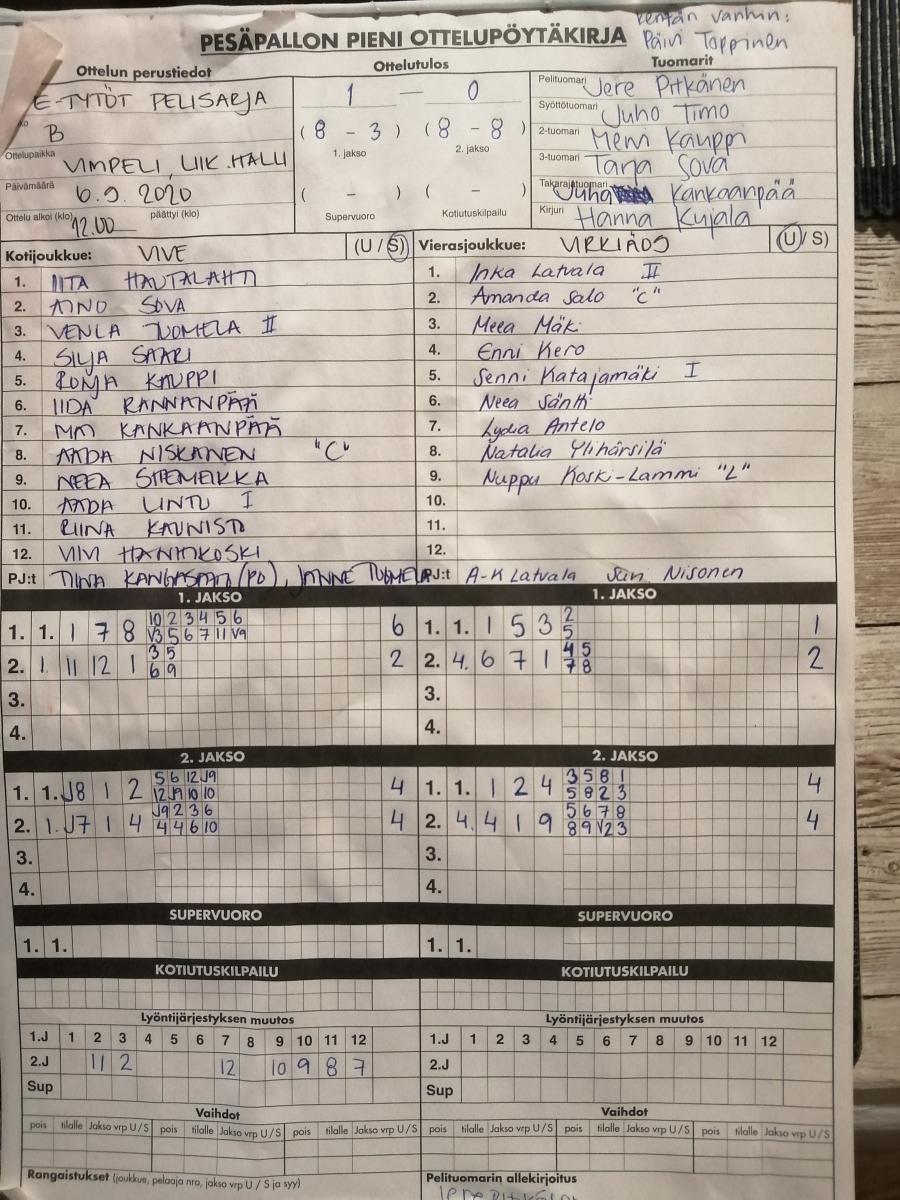 kentän vanhin:
Päivi Toppinen
PESÄPALLON PIENI OTTELUPÖYTÄKIRJA
Ottelun perustiedot
E-TYTÖT PELISARJA
B
Ottelupaikka VIMPELI, LIIK.HALLI
Päivämäärä 6.9.2020
Ottelu alkoi (klo) 12.00 päättyi (klo)
Ottelutulos
1 — 0
( 8 - 3 ) ( 8 - 8 )
1. jakso 2. jakso
( - ) ( - )
Supervuoro Kotiutuskilpailu
Tuomarit
Pelituomari Jere Pitkänen
Syöttötuomari Juho Timo
2-tuomari Meni Kauppi
3-tuomari Tarja Sova
Takarajatuomari Juha Kankaanpää
Kirjuri Hanna Kujala
Kotijoukkue: VIVE (U / S)
1. IITA HAUTALAHTI
2. AINO SOVA
3. VENLA TUOMELA II
4. SILJA SAARI
5. RONJA KAUPPI
6. IIDA RANNANPÄÄ
7. KANKAANPÄÄ
8. AADA NISKANEN "C"
9. NEEA
10. AADA LINTU I
11. RIINA KAUNISTO
12. VIIVI HANHIKOSKI
PJ:t TIINA (PJ), JANNE TUOMELA
Vierasjoukkue: VIRKIÄ (U / S)
1. Inka Latvala II
2. Amanda Salo "C"
3. Meea Mäki
4. Enni Kero
5. Senni Katajamäki I
6. Neea Säntti
7. Lydia Antelo
8. Natalia Ylihärsilä
9. Nuppu Koski-Lammi "L"
10.
11.
12.
PJ:t A-K Latvala Nisonen
1. JAKSO
10 2 3 4 5 6
1. 1. 1 7 8 V3 5 6 7 11 V9 6
3 5
2. 1. 11 12 1 6 9 2
3.
4.
1. JAKSO
2
1. 1. 1 5 3 5 1
4 5
2. 4. 6 7 1 7 8 2
3.
4.
2. JAKSO
5 6 12 J9
1. 1. J8 1 2 12 J9 10 10 4
J9 2 3 6
2. 1. J7 1 4 4 4 6 10 4
3.
4.
2. JAKSO
3 5 8 1
1. 1. 1 2 4 5 8 2 3 4
5 6 7 8
2. 4. 4 1 9 8 9 V2 3 4
3.
4.
SUPERVUORO
1. 1.
SUPERVUORO
1. 1.
KOTIUTUSKILPAILU
KOTIUTUSKILPAILU
Lyöntijärjestyksen muutos
1.J 1 2 3 4 5 6 7 8 9 10 11 12
2.J 11 2 12 10 9 8 7
Sup
Lyöntijärjestyksen muutos
1.J 1 2 3 4 5 6 7 8 9 10 11 12
2.J
Sup
Vaihdot
pois tilalle Jakso vrp U / S pois tilalle Jakso vrp U / S pois tilalle Jakso vrp U / S
Vaihdot
pois tilalle Jakso vrp U / S pois tilalle Jakso vrp U / S pois tilalle Jakso vrp U / S
Rangaistukset (joukkue, pelaaja nro, jakso vrp U / S ja syy)
Pelituomarin allekirjoitus